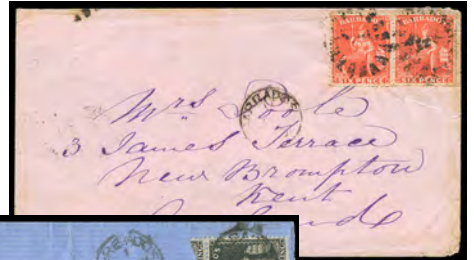 BARBADOS BARBADOS
SIXPENCE SIXPENCE
BARBADOS
Mrs Poole
3 James Terrace
New Brompton
Kent